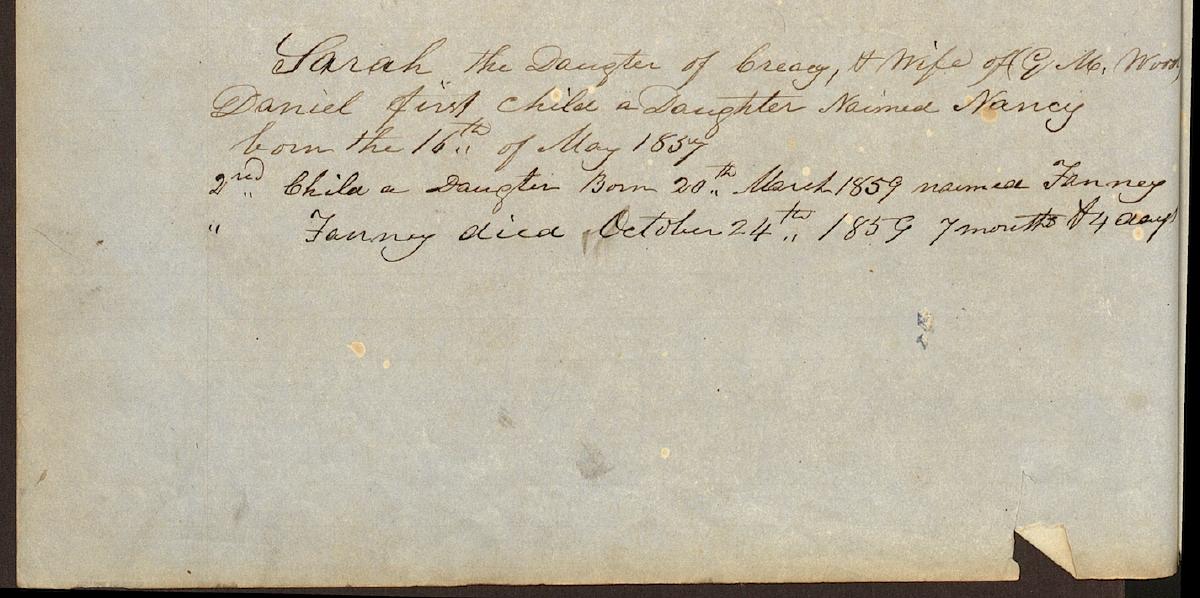 Sarah „ the Daugter of Creacy, & Wife of (G M. Wood
Daniel first Child a Daughter Naimed Nancy
born the 16th„ of May 1857
2nd„ Child a Daugter Born 20th„ March 1859 naimed Fanney
„ Fanney died October 24th„ 1859 7 months & 4 days